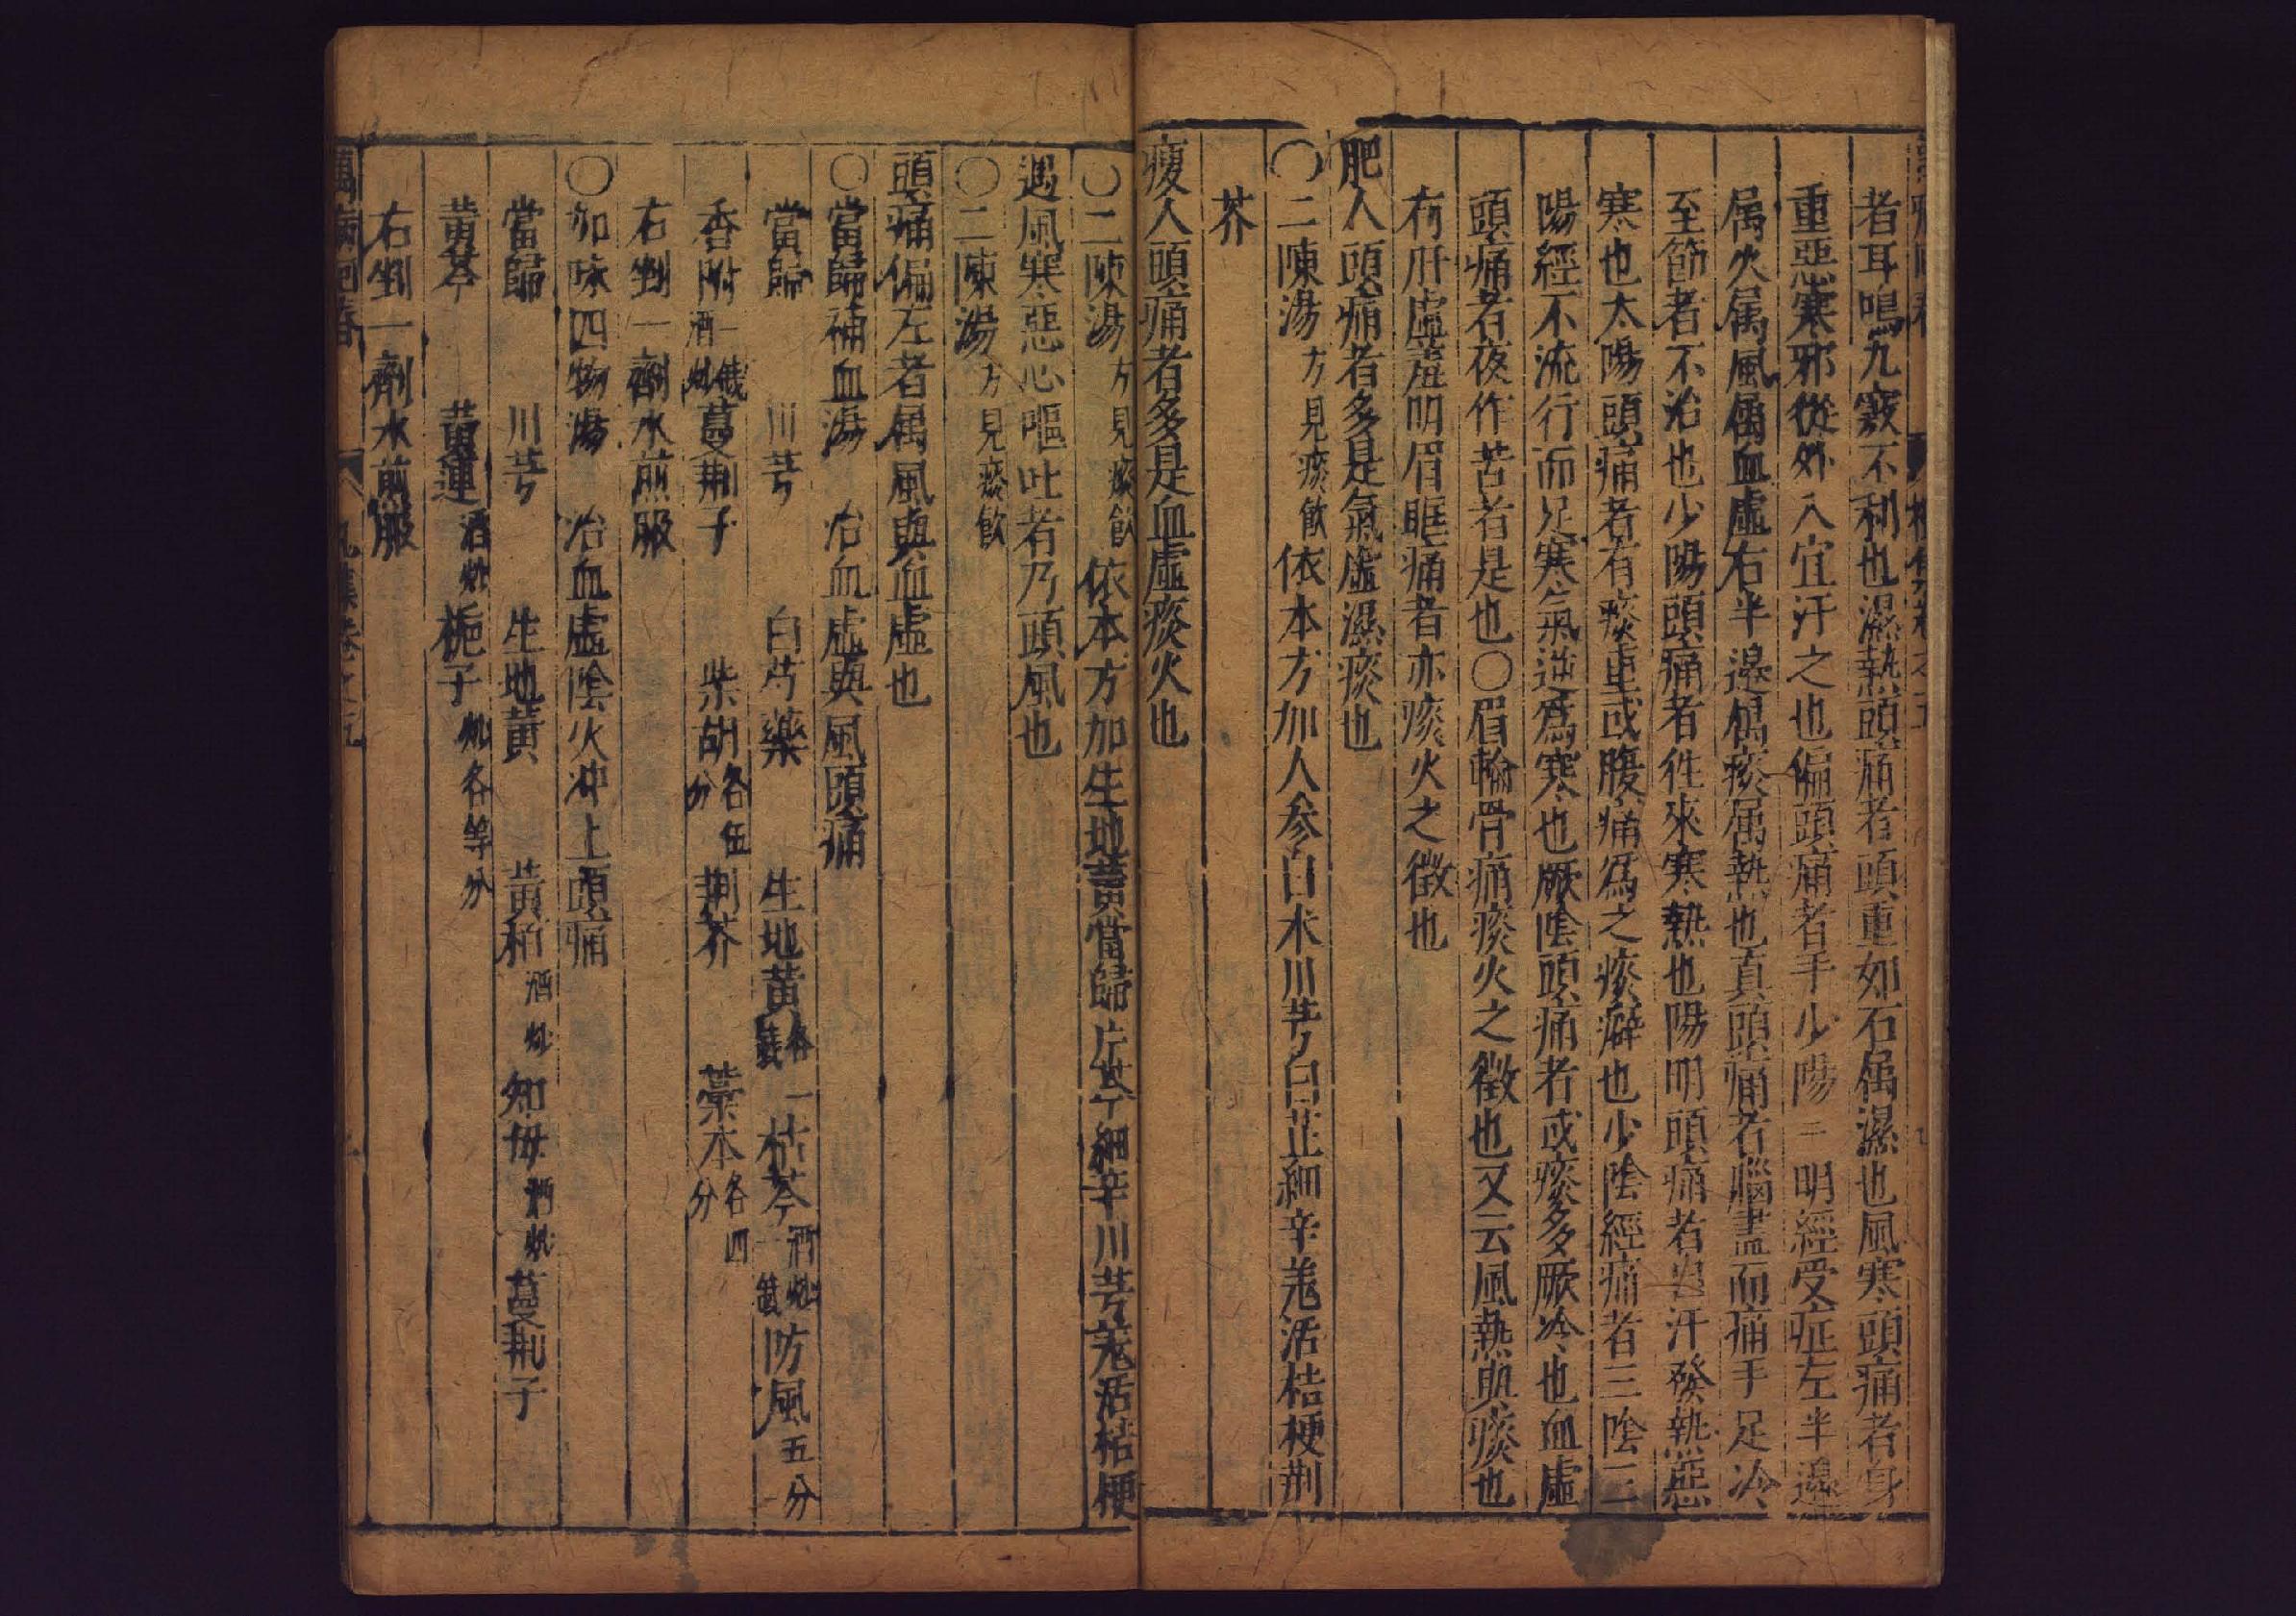 者耳鳴九竅不利也濕熱頭痛者頭重如石属濕也風寒頭痛者身
重惡寒邪從外入宜汗之也偏頭痛者手少陽明經受症左半邊
属火属風属血虛右半邊属痰属熱也真頭痛者腦盡而痛手足冷
至節者不治也少陽頭痛者徃來寒熱也陽明頭痛者自汗發熱惡
寒也太陽頭痛者有痰重或腹痛爲之痰癖也少陰經痛者三陰三
陽經不流行而足寒氣逆爲寒也厥陰頭痛者或痰多厥冷也血虛
頭痛者夜作苦者是也〇眉輪骨痛痰火之徵也又云風熱與痰也
有肝虛羞明眉眶痛者亦痰火之徵也
肥人頭痛者多是氣虛濕痰也
〇二陳湯方見痰飲依本方加人參白术川芎白芷細辛羌活桔梗荆
芥
瘦人頭痛者多是血虛痰火也
〇二陳湯方見痰飲依本方加生地黃當歸片芩細辛川芎羌活桔梗
遇風寒惡心嘔吐者乃頭風也
〇二陳湯方見痰飲
頭痛偏左者属風與血虛也
〇當歸補血湯 治血虛與風頭痛
當歸 川芎 白芍藥 生地黃各一錢 枯芩酒炒一錢 防風五分
香附酒炒一錢 蔓荆子 柴胡各伍分 荆芥 藁本各四分
右剉一劑水煎服
〇加味四物湯 治血虛陰火冲上頭痛
當歸 川芎 生地黃 黃栢酒炒 知母酒炒 蔓荆子
黃芩 黃連酒炒 梔子炒各等分
右剉一劑水煎服
萬病回春 卷之五